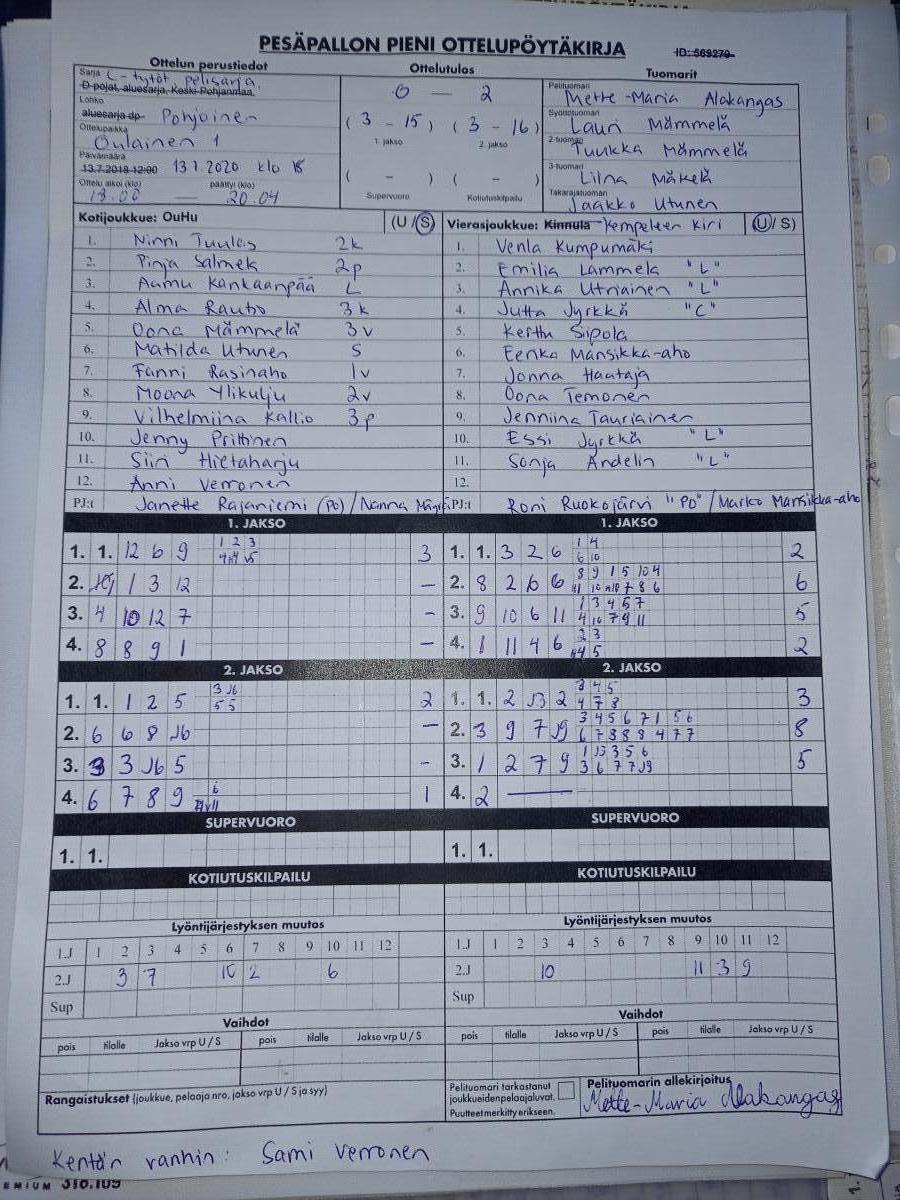 PESÄPALLON PIENI OTTELUPÖYTÄKIRJA
ID: 569270
Ottelun perustiedot
Ottelutulos
Tuomarit
Sarja C-tytöt, pelisarja
D-pojat, aluesarja, Keski-Pohjanmaa
Lohko
aluesarja dp Pohjoinen
Ottelupaikka
Oulainen 1
Päivämäärä
13.7.2018 12:00 13.7.2020 klo 18
Ottelu alkoi (klo) päättyi (klo)
18.00 — 20.04
0 — 2
(3 - 15) (3 - 16)
1. jakso 2. jakso
( - ) ( - )
Supervuoro Kotiutuskilpailu
Pelituomari
Mette-Maria Alakangas
Syöttötuomari
Lauri Mämmelä
2-tuomari
Tuukka Mämmelä
3-tuomari
Liina Mäkelä
Takarajatuomari
Jaakko Utunen
Kotijoukkue: OuHu (U/S)
1. Ninni Tuulos 2k
2. Pinja Salmek 2p
3. Aamu Kankaanpää L
4. Alma Rautio 3k
5. Oona Mämmelä 3v
6. Matilda Utunen S
7. Fanni Rasinaho 1v
8. Moona Ylikulju 2v
9. Vilhelmiina Kallio 3p
10. Jenny Prittinen
11. Siiri Hietaharju
12. Anni Verronen
PJ:t Janette Rajaniemi (PO) / Nanna
Vierasjoukkue: Kinnula Kempeleen Kiri (U/S)
1. Venla Kumpumäki
2. Emilia Lammela "L"
3. Annika Utriainen "L"
4. Jutta Jyrkkä "C"
5. Kerttu Sipola
6. Eerika Mansikka-aho
7. Jonna Haataja
8. Oona Temonen
9. Jenniina Tauriainen
10. Essi Jyrkkä "L"
11. Sonja Andelin "L"
12.
PJ:t Roni Ruokojärvi "PO" / Marko Mansikka-aho
1. JAKSO
1. 1. 12 6 9 1 2 3 3
2. 1 3 12 –
3. 4 10 12 7 –
4. 8 8 9 1 –
2. JAKSO
1. 1. 1 2 5 3 J6 2
5 5
2. 6 6 8 J6 –
3. 3 3 J6 5 –
4. 6 7 8 9 6 1
SUPERVUORO
1. 1.
KOTIUTUSKILPAILU
1. JAKSO
1. 1. 3 2 6 1 4 2
6 10
2. 8 2 6 6 8 9 1 5 10 4 6
3. 9 10 6 11 1 3 4 5 7 5
4 10 7 9 11
4. 1 11 4 6 2 3 2
2. JAKSO
1. 1. 2 J3 2 3 4 5 3
4 7 8
2. 3 9 7 J9 3 4 5 6 7 1 5 6 8
6 7 3 8 8 8 4 7 7
3. 1 2 7 9 1 J3 3 5 6 5
3 6 7 7 J9
4. 2 —
SUPERVUORO
1. 1.
KOTIUTUSKILPAILU
Lyöntijärjestyksen muutos
1.J 1 2 3 4 5 6 7 8 9 10 11 12
2.J 3 7 10 2 6
Sup
Vaihdot
pois tilalle Jakso vrp U / S pois tilalle Jakso vrp U / S
Lyöntijärjestyksen muutos
1.J 1 2 3 4 5 6 7 8 9 10 11 12
2.J 10 11 3 9
Sup
Vaihdot
pois tilalle Jakso vrp U / S pois tilalle Jakso vrp U / S
Rangaistukset (joukkue, pelaaja nro, jakso vrp U / S ja syy)
Pelituomari tarkastanut
joukkueidenpelaajaluvat.
Puutteet merkitty erikseen.
Pelituomarin allekirjoitus
Mette-Maria Alakangas
Kentän vanhin: Sami Verronen